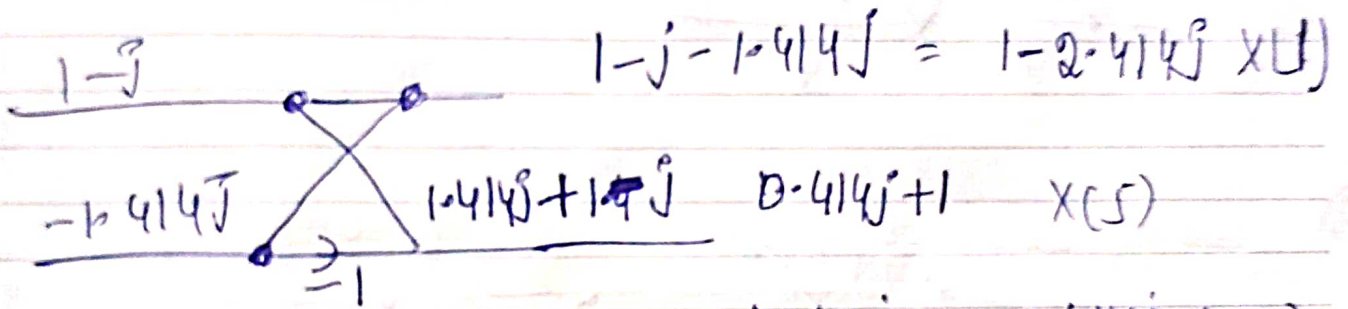 1-j
1-j-1.414j = 1-2.414j X(1)
-1.414j
1.414j+1-j 0.414j+1 X(5)
-1